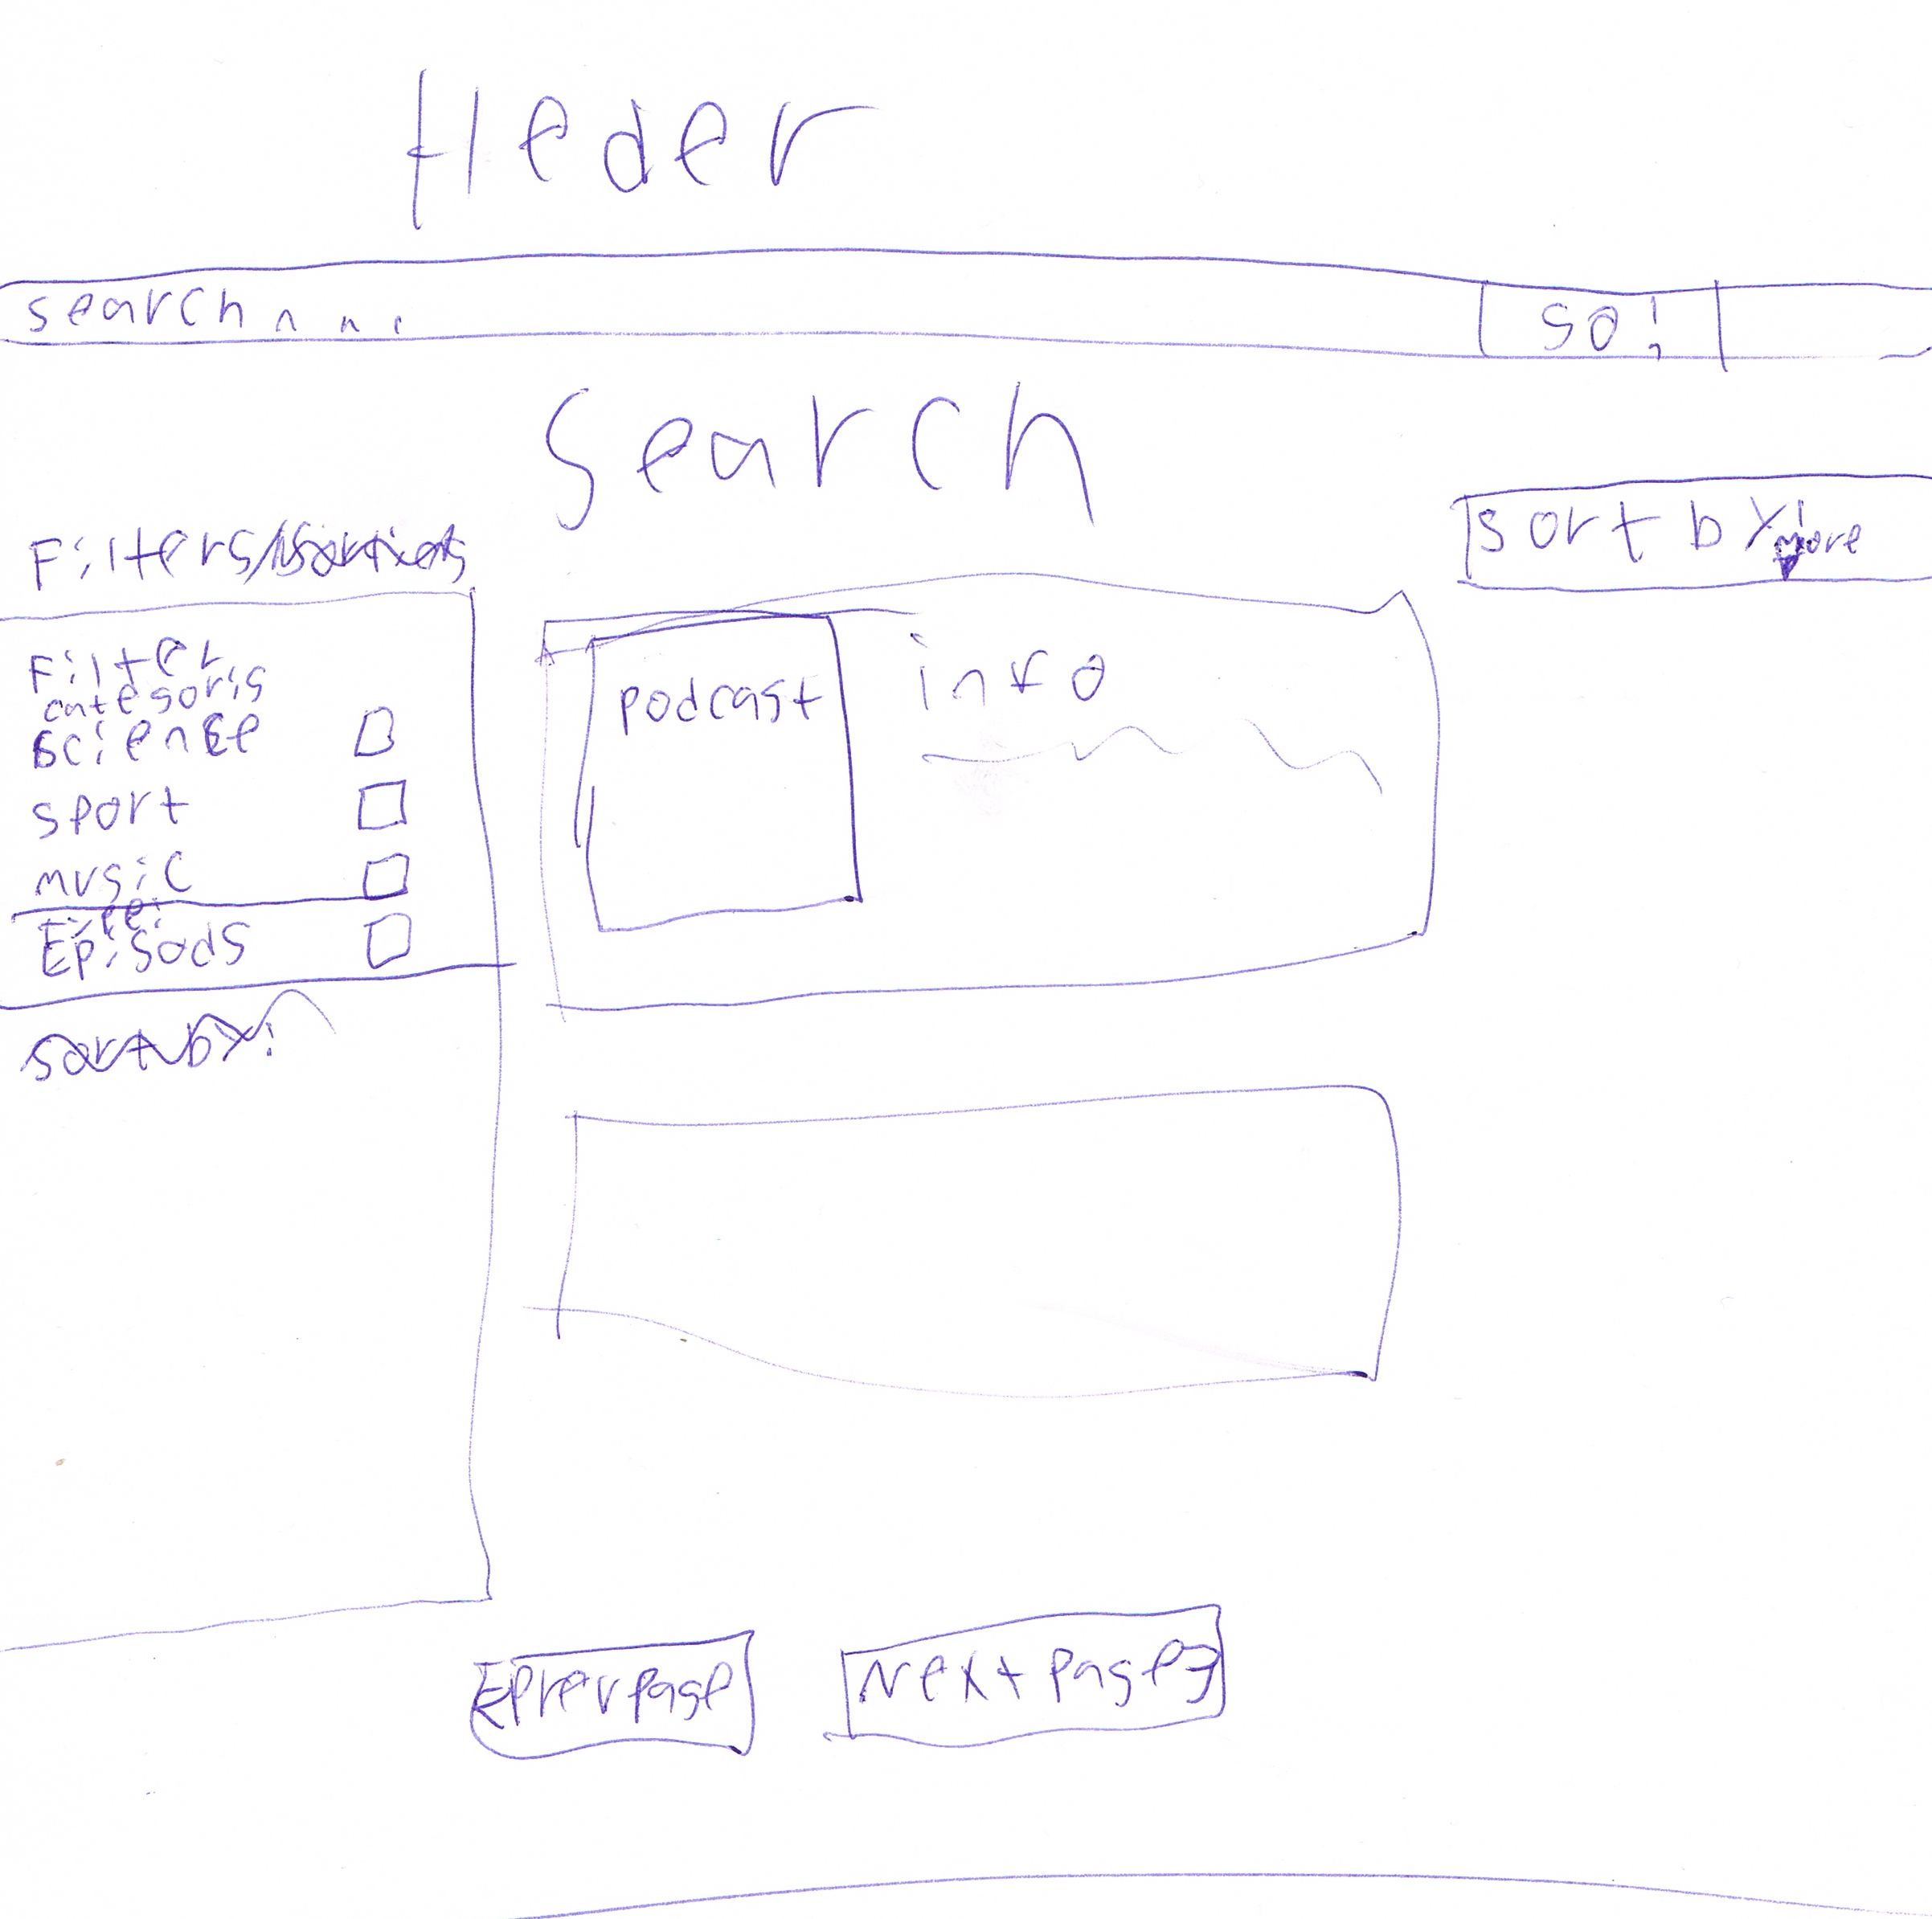 Heder
search...
go!
Search
Filters/
sort by:
more
Filter
categoris
science
sport
music
Episods
sort by:
podcast
info
prev page
Next page